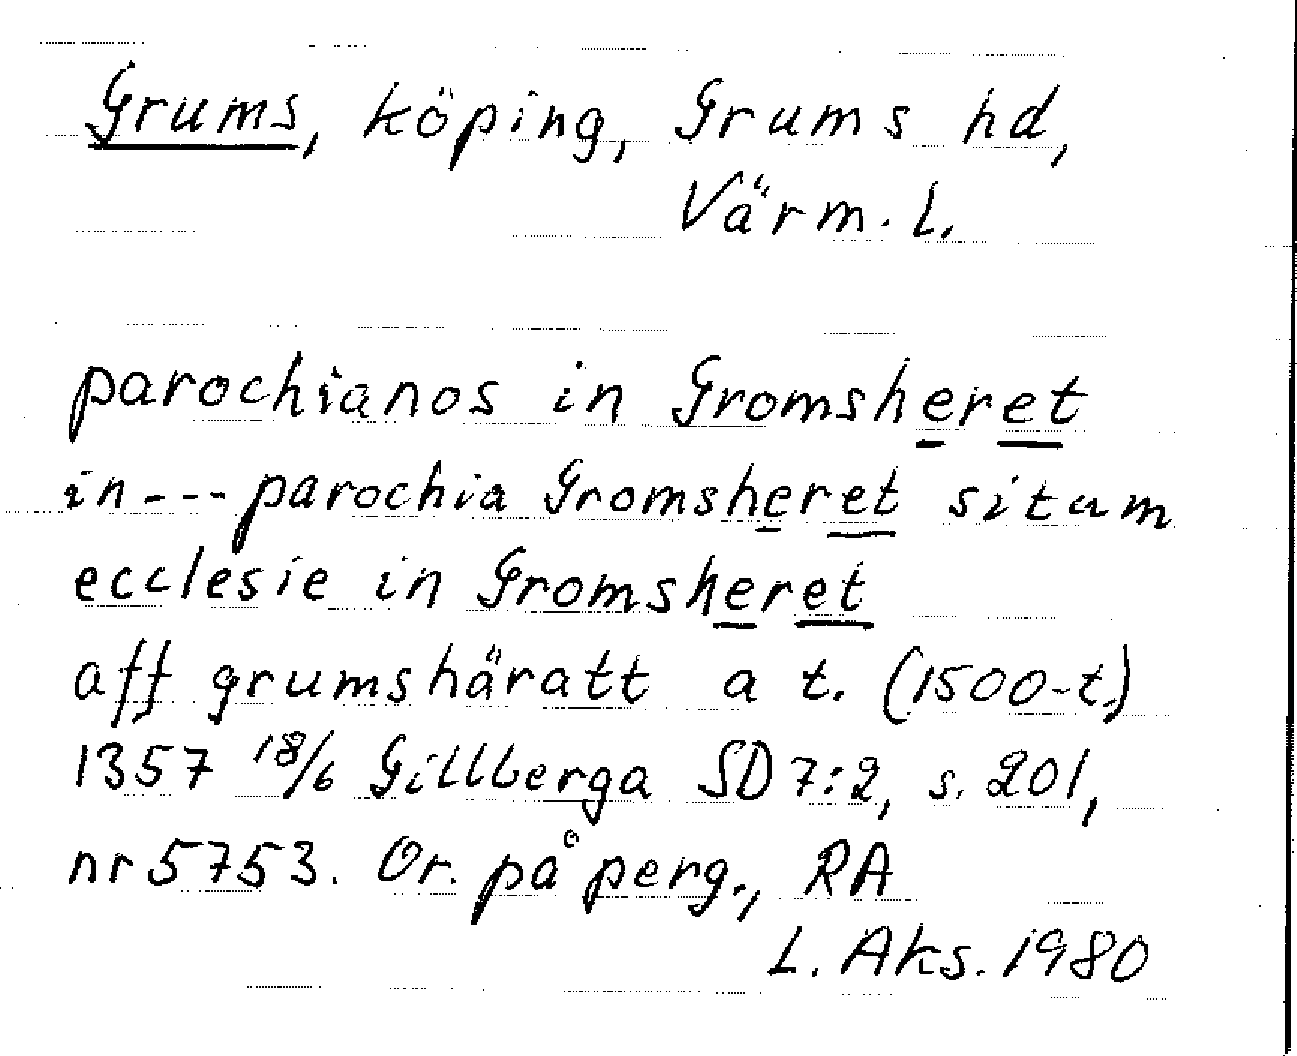 Grums, köping, Grums hd,
Värm. l.
parochianos in Gromsheret
in --- parochia Gromsheret situm
ecclesie in Gromsheret
aff grumshäratt a t. (1500-t.)
1357 18/6 Gillberga SD 7:2, s. 201,
nr 5753. Or. på perg., RA
L. Aks. 1980